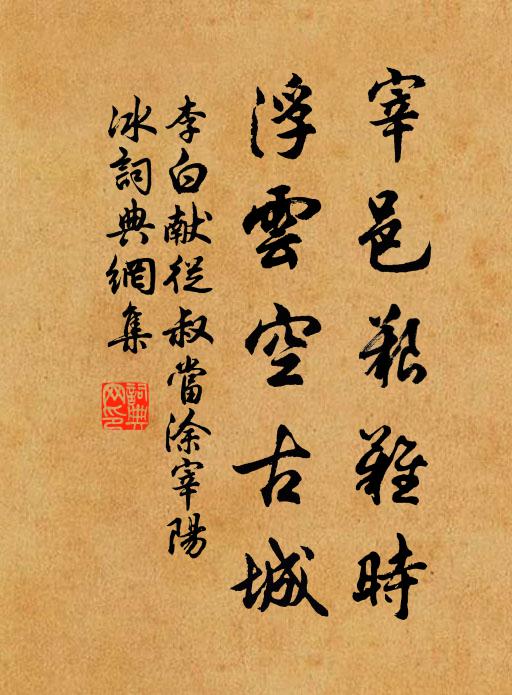 宰邑艱難時
浮雲空古城
李白献從叔當涂宰陽
冰詞典網集
詞典网印